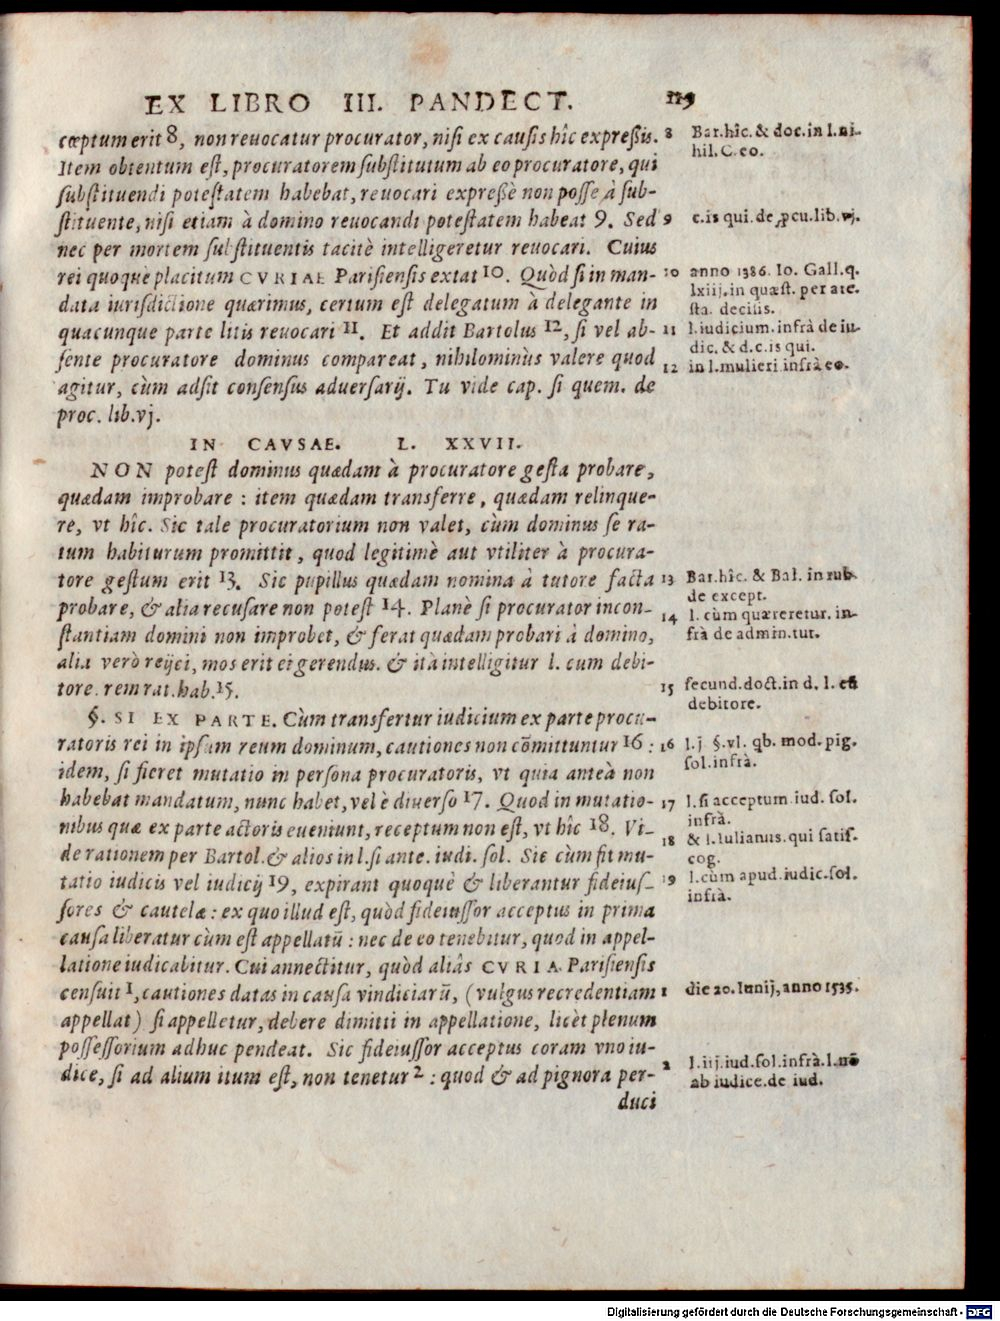 EX LIBRO III. PANDECT. 119
cœptum erit 8, non reuocatur procurator, nisi ex causis hîc expreßis.
Item obtentum est, procuratorem substitutum ab eo procuratore, qui
substituendi potestatem habebat, reuocari expreßè non posse à sub-
stituente, nisi etiam à domino reuocandi potestatem habeat 9. Sed
nec per mortem substituentis tacitè intelligeretur reuocari. Cuius
rei quoque placitum CVRIAE Parisiensis extat 10. Quòd si in man-
data iurisdictione quærimus, certum est delegatum à delegante in
quacunque parte litis reuocari 11. Et addit Bartolus 12, si vel ab-
sente procuratore dominus compareat, nihilominùs valere quod
agitur, cùm adsit consensus aduersarij. Tu vide cap. si quem. de
proc. lib.vj.
IN CAVSAE. L. XXVII.
NON potest dominus quædam à procuratore gesta probare,
quædam improbare : item quædam transferre, quædam relinque-
re, vt hîc. Sic tale procuratorium non valet, cùm dominus se ra-
tum habiturum promittit, quod legitimè aut vtiliter à procura-
tore gestum erit 13. Sic pupillus quædam nomina à tutore facta
probare, & alia recusare non potest 14. Planè si procurator incon-
stantiam domini non improbet, & ferat quædam probari à domino,
alia verò reijci, mos erit ei gerendus. & ità intelligitur l. cum debi-
tore. rem rat. hab.15.
§. SI EX PARTE. Cùm transfertur iudicium ex parte procu-
ratoris rei in ipsum reum dominum, cautiones non cōmittuntur 16 :
idem, si fieret mutatio in persona procuratoris, vt quia anteà non
habebat mandatum, nunc habet, vel è diuerso 17. Quod in mutatio-
nibus quæ ex parte actoris eueniunt, receptum non est, vt hîc 18. Vi-
de rationem per Bartol. & alios in l. si ante. iudi. sol. Sic cùm fit mu-
tatio iudicis vel iudicij 19, expirant quoquè & liberantur fideius-
sores & cautelæ : ex quo illud est, quòd fideiussor acceptus in prima
causa liberatur cùm est appellatū : nec de eo tenebitur, quod in appel-
latione iudicabitur. Cui annectitur, quòd aliâs CVRIA Parisiensis
censuit 1, cautiones datas in causa vindiciarū, (vulgus recredentiam
appellat) si appelletur, debere dimitti in appellatione, licèt plenum
possessorium adhuc pendeat. Sic fideiussor acceptus coram vno iu-
dice, si ad alium itum est, non tenetur 2 : quod & ad pignora per-
duci
8 Bar.hîc. & doc. in l. ni-
hil. C. eo.
9 c.is qui. de ꝓcu.lib.vj.
10 anno 1386. Io. Gall. q.
lxiij. in quæst. per are-
sta. decisis.
11 l.iudicium. infrà de iu-
dic. & d.c.is qui.
12 in l.mulieri.infrà eo.
13 Bar.hîc. & Bal. in rub.
de except.
14 l. cùm quæreretur. in-
frà de admin.tut.
15 secund.doct.in d. l. cū
debitore.
16 l.j §.vl. qb. mod. pig.
sol.infrà.
17 l.si acceptum.iud. sol.
infrà.
18 & l.Iulianus.qui satis.
cog.
19 l.cùm apud.iudic.sol.
infrà.
1 die 20. Iunij, anno 1535.
2 l.iij.iud.sol.infrà.l.nō
ab iudice.de iud.
Digitalisierung gefördert durch die Deutsche Forschungsgemeinschaft - DFG